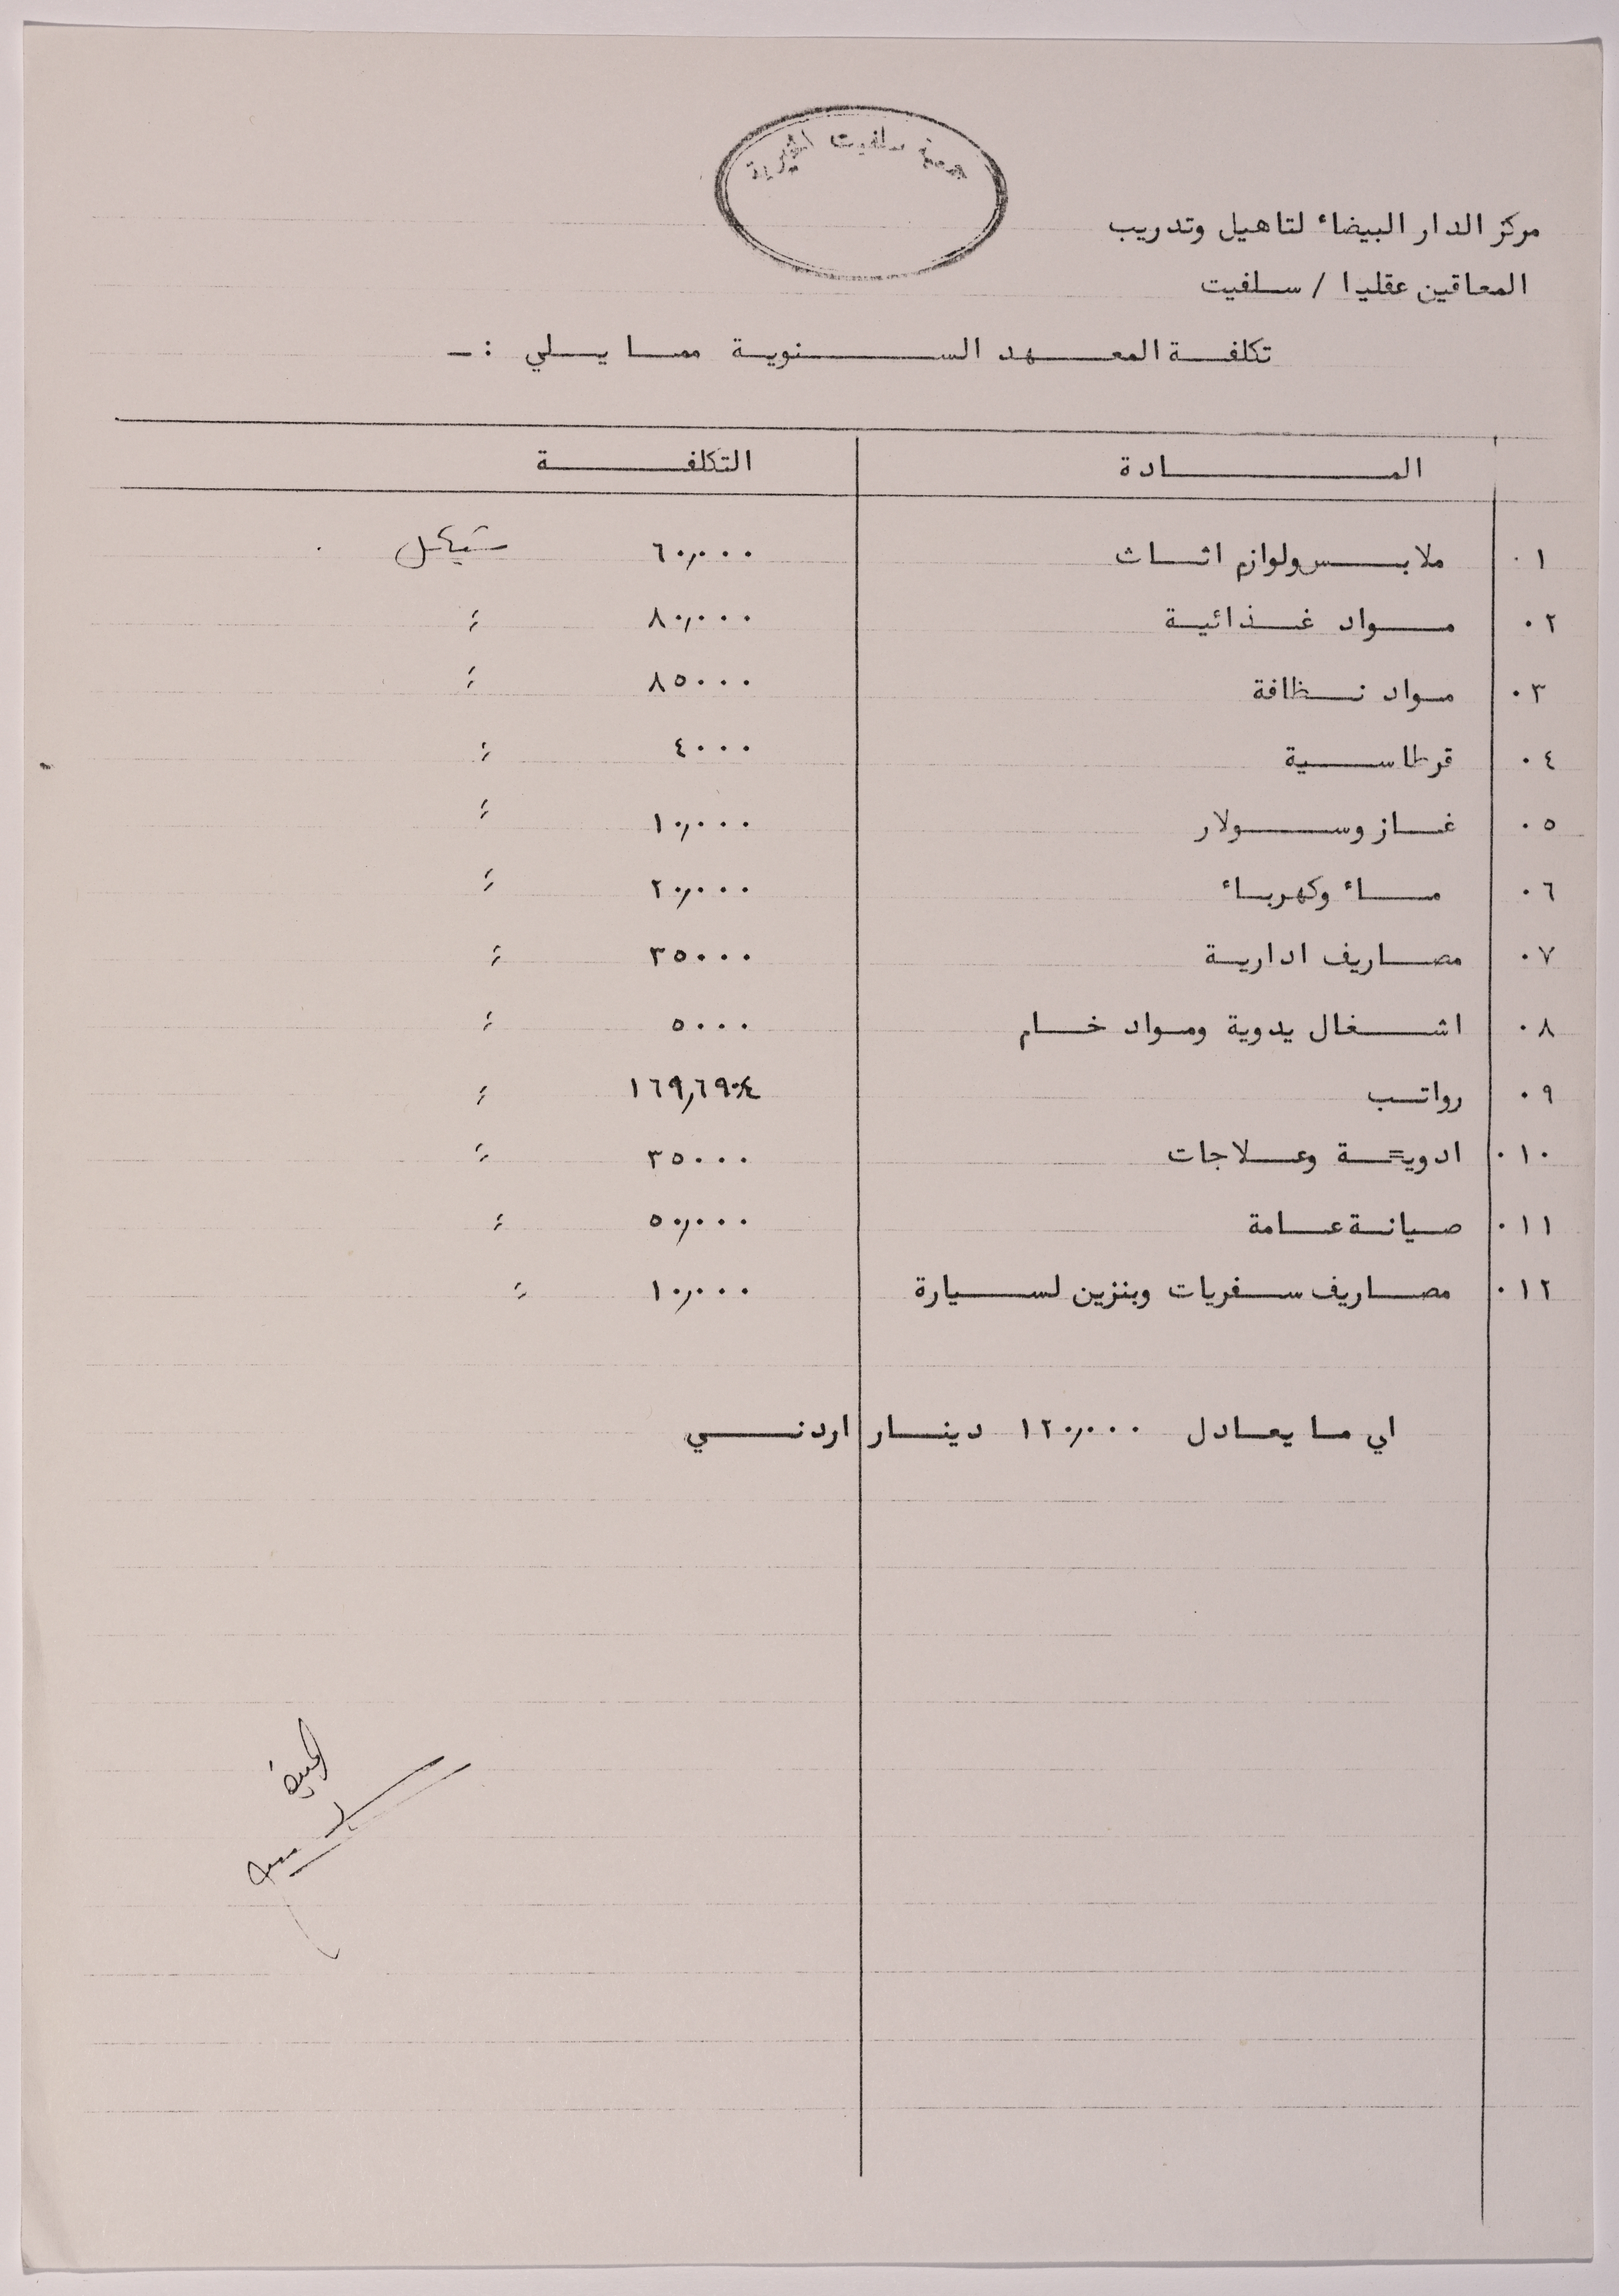 جمعية سلفيت الخيرية
مركز الدار البيضاء لتاهيل وتدريب
المعاقين عقليا / سلفيت
تكلفة المعهد السنوية مما يلي :ـ
المادة التكلفة
٠١ ملابس ولوازم اثاث ٦٠,٠٠٠ شيكل
٠٢ مواد غذائية ٨٠,٠٠٠ ؛
٠٣ مواد نظافة ٨٥٠٠٠ ؛
٠٤ قرطاسية ٤٠٠٠ ؛
٠٥ غاز وسولار ١٠,٠٠٠ ؛
٠٦ ماء وكهرباء ٢٠,٠٠٠ ؛
٠٧ مصاريف ادارية ٣٥٠٠٠ ؛
٠٨ اشغال يدوية ومواد خام ٥٠٠٠ ؛
٠٩ رواتب ١٦٩,٦٩٠٤ ؛
٠١٠ ادوية وعلاجات ٣٥٠٠٠ ؛
٠١١ صيانة عامة ٥٠,٠٠٠ ؛
٠١٢ مصاريف سفريات وبنزين لسيارة ١٠,٠٠٠ ؛
اي ما يعادل ١٢٠,٠٠٠ دينار اردني